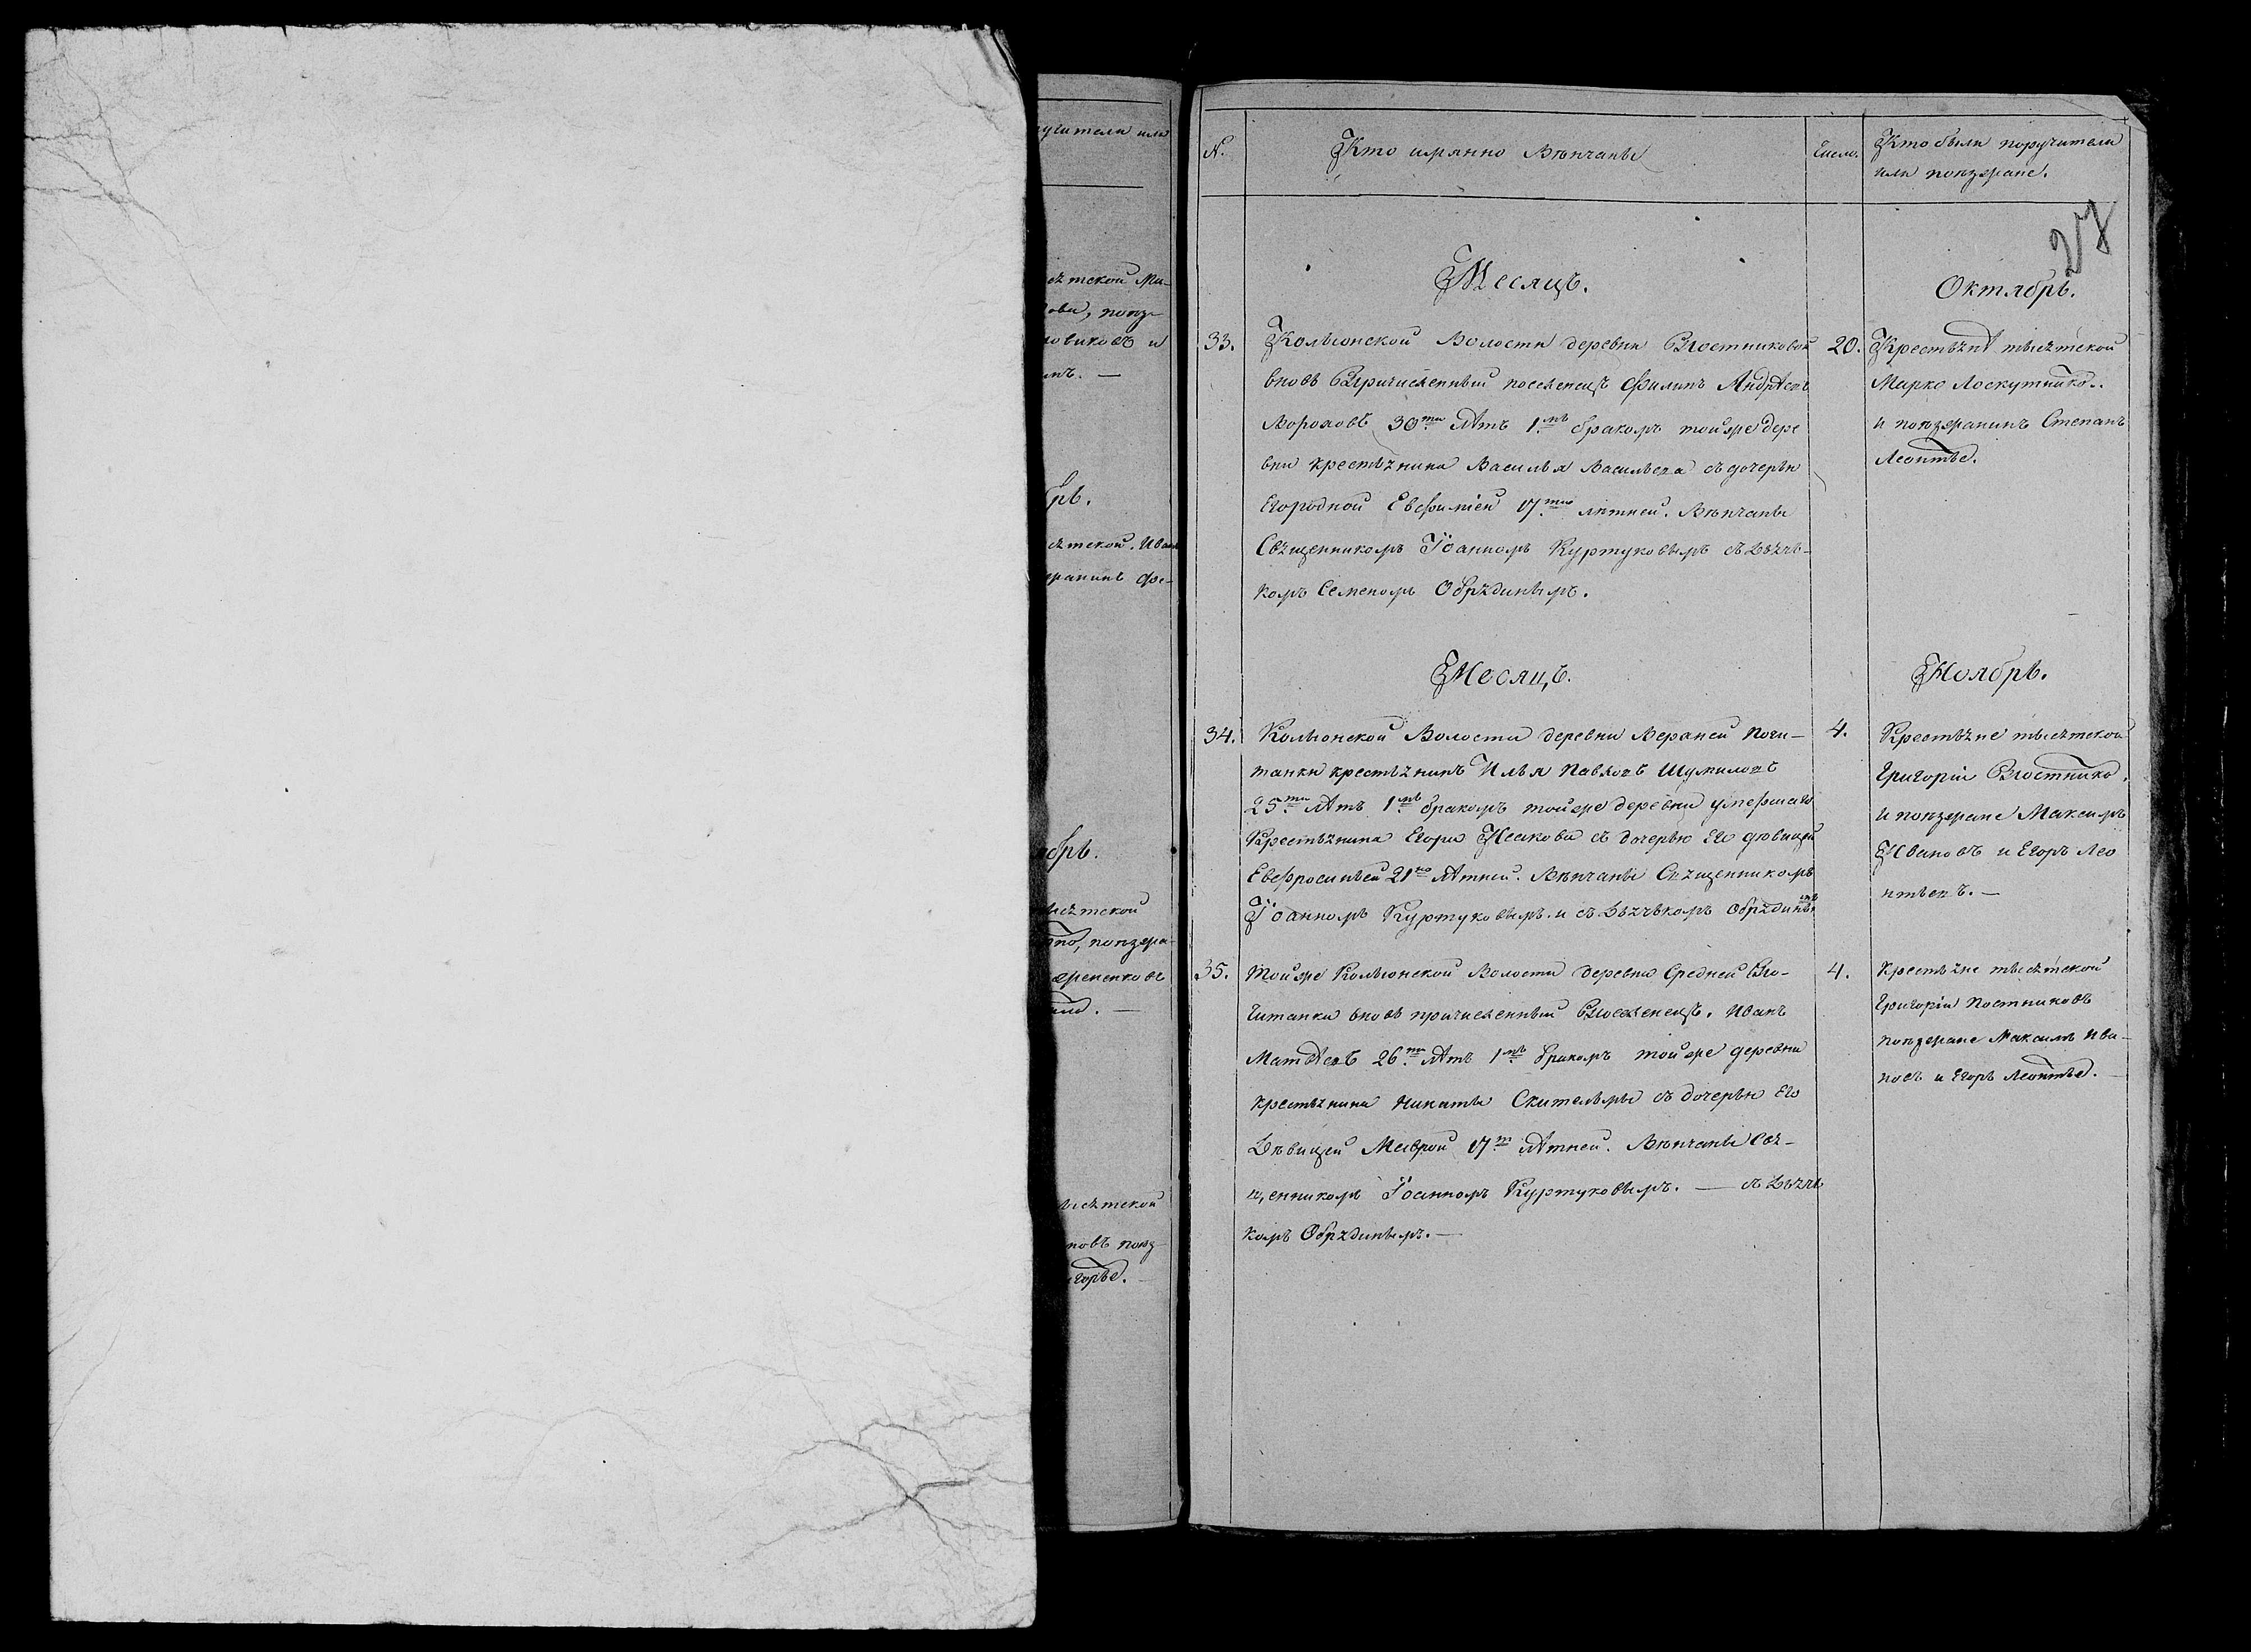 учители или
ятской Ми-
ова, поѣз-
новиковъ и
инъ. —
брь.
ятской. Иван
жанинъ Фе-
абрь.
ысятской
но, поѣзжа-
еременковъ
ысятской
новъ поѣз-
игорье.
№.
Кто имянно Вѣнчаны
Число.
Кто были поручители
или поѣзжане.
27
Месяцъ.
Октябрь.
33.
Колыонской Волости деревни Постниковой
вновь Причисленный поселенецъ Филипъ Андрѣевъ
Вороховъ 30ти лѣтъ 1мъ бракомъ тойже дере
вни крестьянина Василья Васильева съ дочерью
Егородной Евфиміей 17тию лѣтней. Вѣнчаны
Священникомъ Іоанномъ Куртуковымъ съ Дьячь-
комъ Семеномъ Обрядинымъ.
20.
Крестьянѣ тысятской
Марко Лоскутнико..
и поѣзжанинъ Степанъ
Леонтье.
Месяцъ.
Ноябрь.
34.
Колыонской Волости деревни Верхней Почи-
танки крестьянинъ Илья Павловъ Шумиловъ
25ти лѣтъ 1мъ бракомъ тойже деревни умершаго
Крестьянина Егора Исакова съ дочерью Его дѣвицей
Евфросиньей 21но лѣтней. Вѣнчаны Священникомъ
Іоанномъ Куртуковымъ. и съ Дьячькомъ Обрядинымъ
4.
Крестьяне тысятской
Григорій Постнико.
и поѣзжане Максимъ
Ивановъ и Егоръ Лео
нтьевъ. —
35.
Тойже Колыонской Волости деревни Средней По-
читанки вновь причисленный Поселенецъ. Иванъ
Матвѣевъ 26ти лѣтъ 1мъ бракомъ тойже деревни
крестьянина Никиты Скительмы съ дочерью Его
Дѣвицей Маврой 17т лѣтней. Вѣнчаны Свя-
щенникомъ Іоанномъ Куртуковымъ. — съ Дьячь
комъ Обрядинымъ. —
4.
Крестьяне тысятской
Григорій Постниковъ
поѣзжане Максимъ Ива-
новъ и Егоръ Леонтье. —